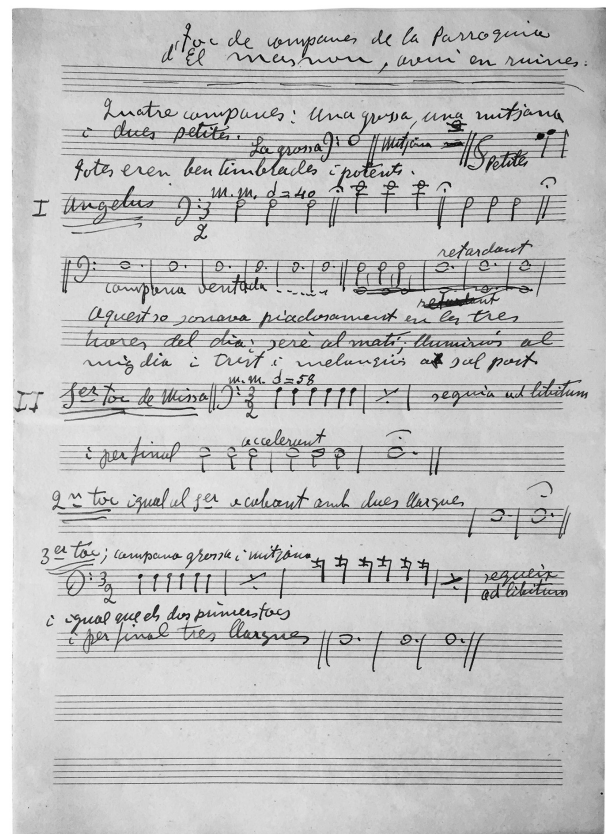 Toc de campanes de la Parroquia
d'El Masnou, avui en ruines.
Quatre campanes: Una grossa, una mitjana
i dues petites. La grossa Mitjana Petites
Totes eren ben timbrades i potents.
I Angelus M.M. = 40 3 2
retardant
campana ventada
retardant
Aquest so sonava piadosament en les tres
hores del dia: serè al matí, lluminós al
mig dia i trist i melangiós al sol post
II 1er toc de Missa M.M. = 58 3 2 seguia ad libitum
i per final accelerant
2n toc igual al 1er acabant amb dues llargues
3er toc; campana grossa i mitjana
3 2 segueix
ad libitum
i igual que els dos primers tocs
i per final tres llargues